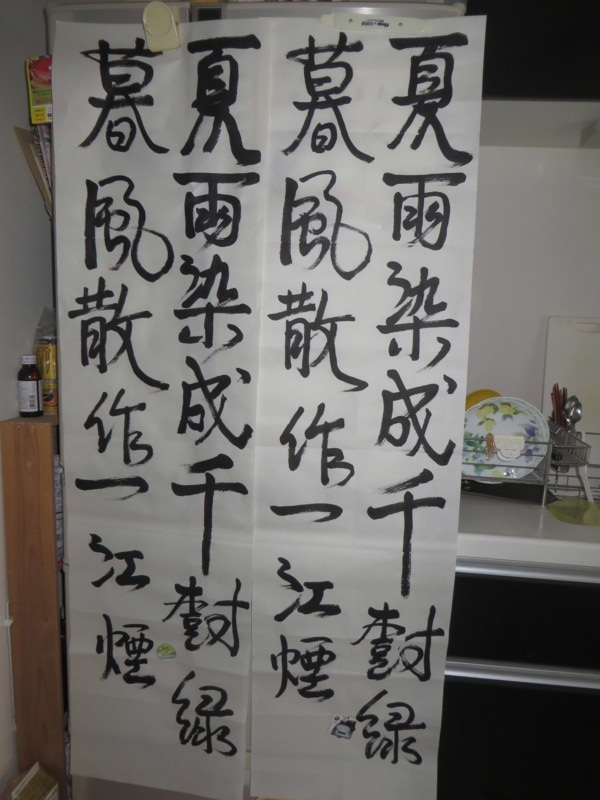 夏雨染成千樹緑
暮風散作一江煙
夏雨染成千樹緑
暮風散作一江煙